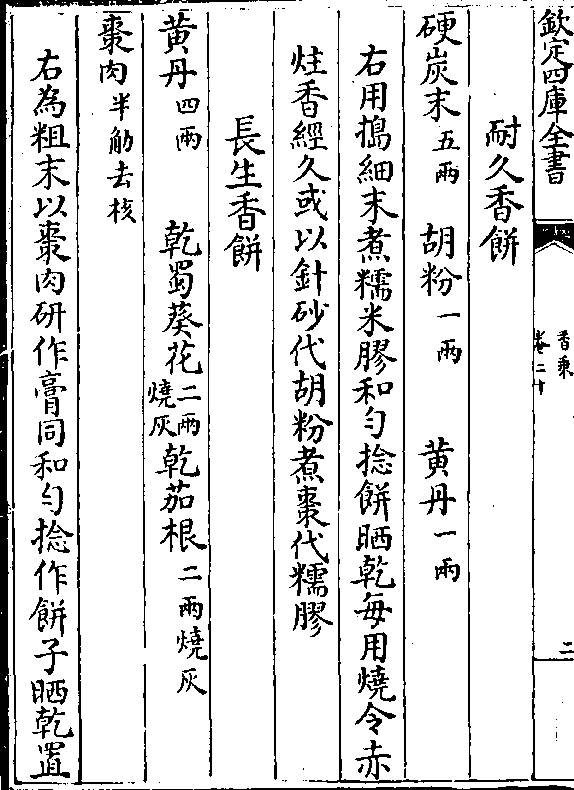 欽定四庫全書
香乘
卷二十
二
耐久香餅
硬炭末五兩 胡粉一兩 黄丹一兩
右用搗細末煮糯米膠和匀捻餅晒乾每用燒令赤
炷香經久或以針砂代胡粉煮棗代糯膠
長生香餅
黄丹四兩 乾蜀葵花二兩燒灰 乾茄根二兩燒灰
棗肉半觔去核
右為粗末以棗肉研作膏同和匀捻作餅子晒乾置